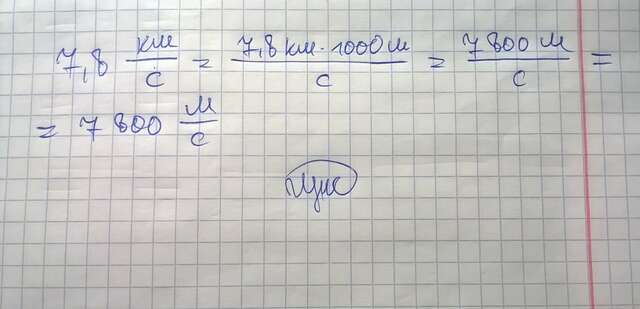 7,8 км/с = 7,8 км · 1000 м/с = 7 800 м/с =
= 7 800 м/с